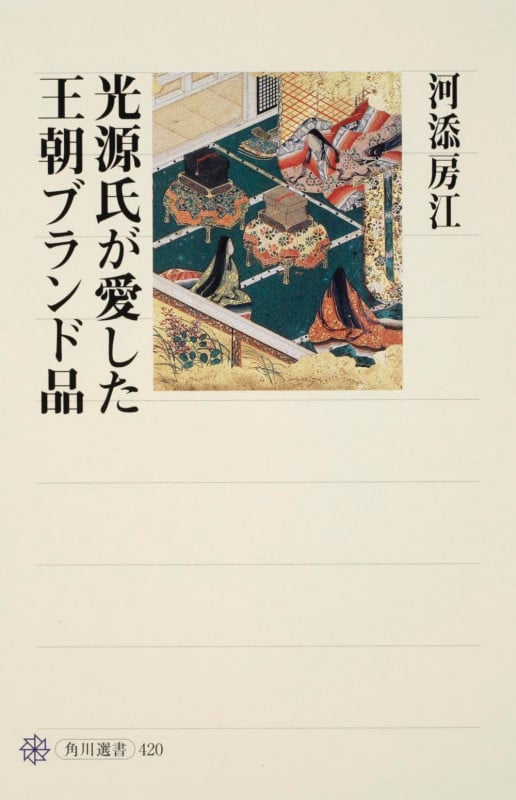 河添房江
光源氏が愛した
王朝ブランド品
角川選書 420